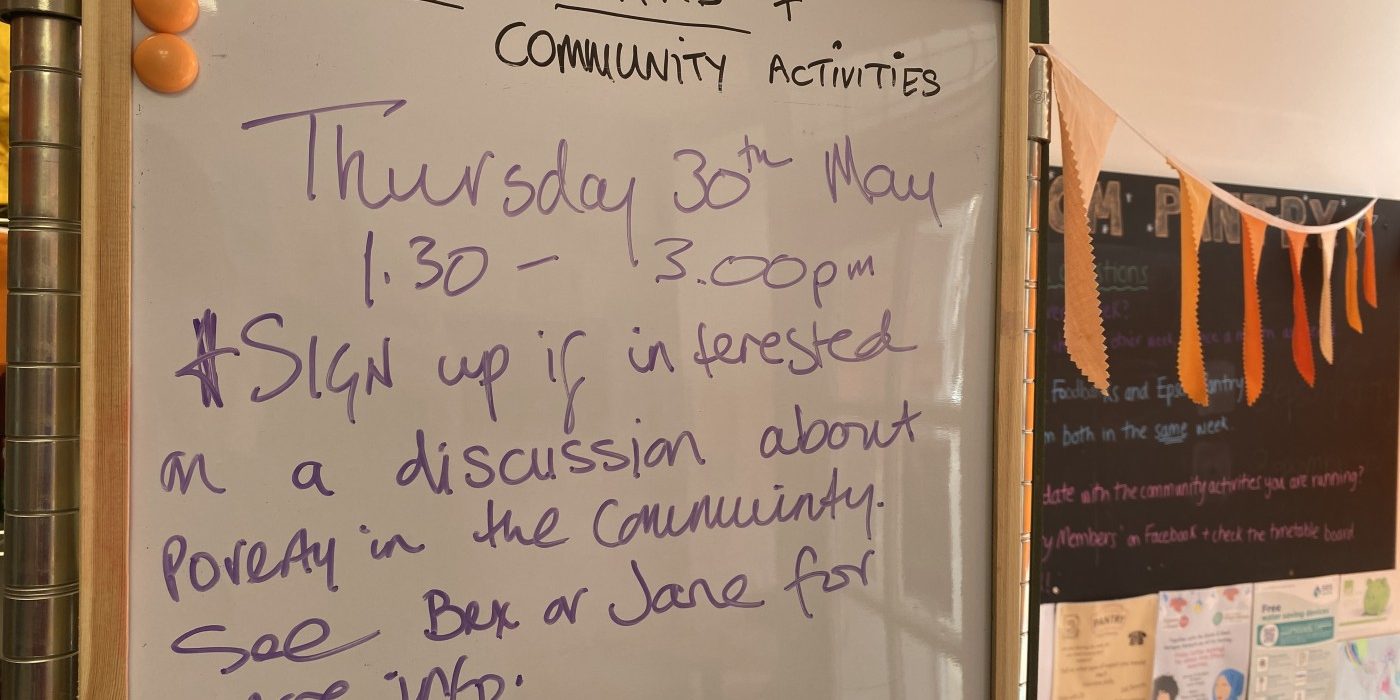 COMMUNITY ACTIVITIES
Thursday 30th May
1.30 - 3.00pm
SIGN up if interested
on a discussion about
Poverty in the Communinty.
See Bex or Jane for
info.
OM PANTRY
Foodbanks and Epsom Pantry
both in the same week.
date with the community activities you are running?
y Members' on Facebook + check the timetable board
PANTRY
Free
water saving devices